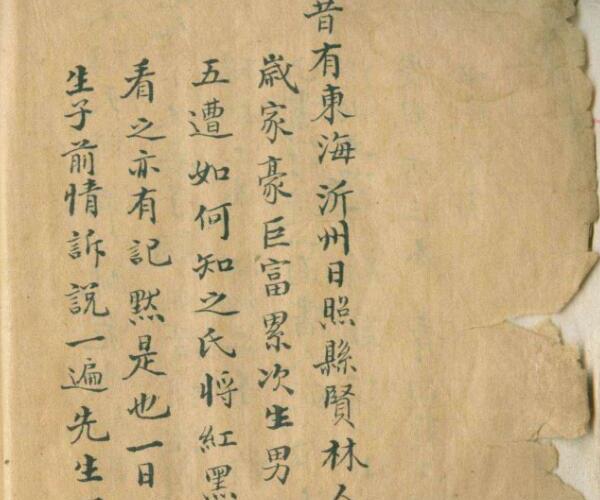 昔有東海沂州日照縣賢林人
歲家豪巨富累次生男
五遭如何知之氏将紅黑
看之亦有記黙是也一日
生子前情訴說一遍先生